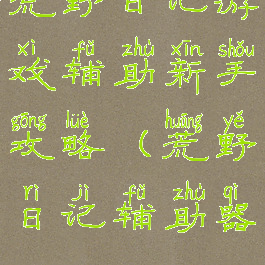 荒野日记游
xì fǔ zhù xīn shǒu
戏辅助新手
gōng lüè huāng yě
攻略（荒野
rì jì fǔ zhù qì
日记辅助器